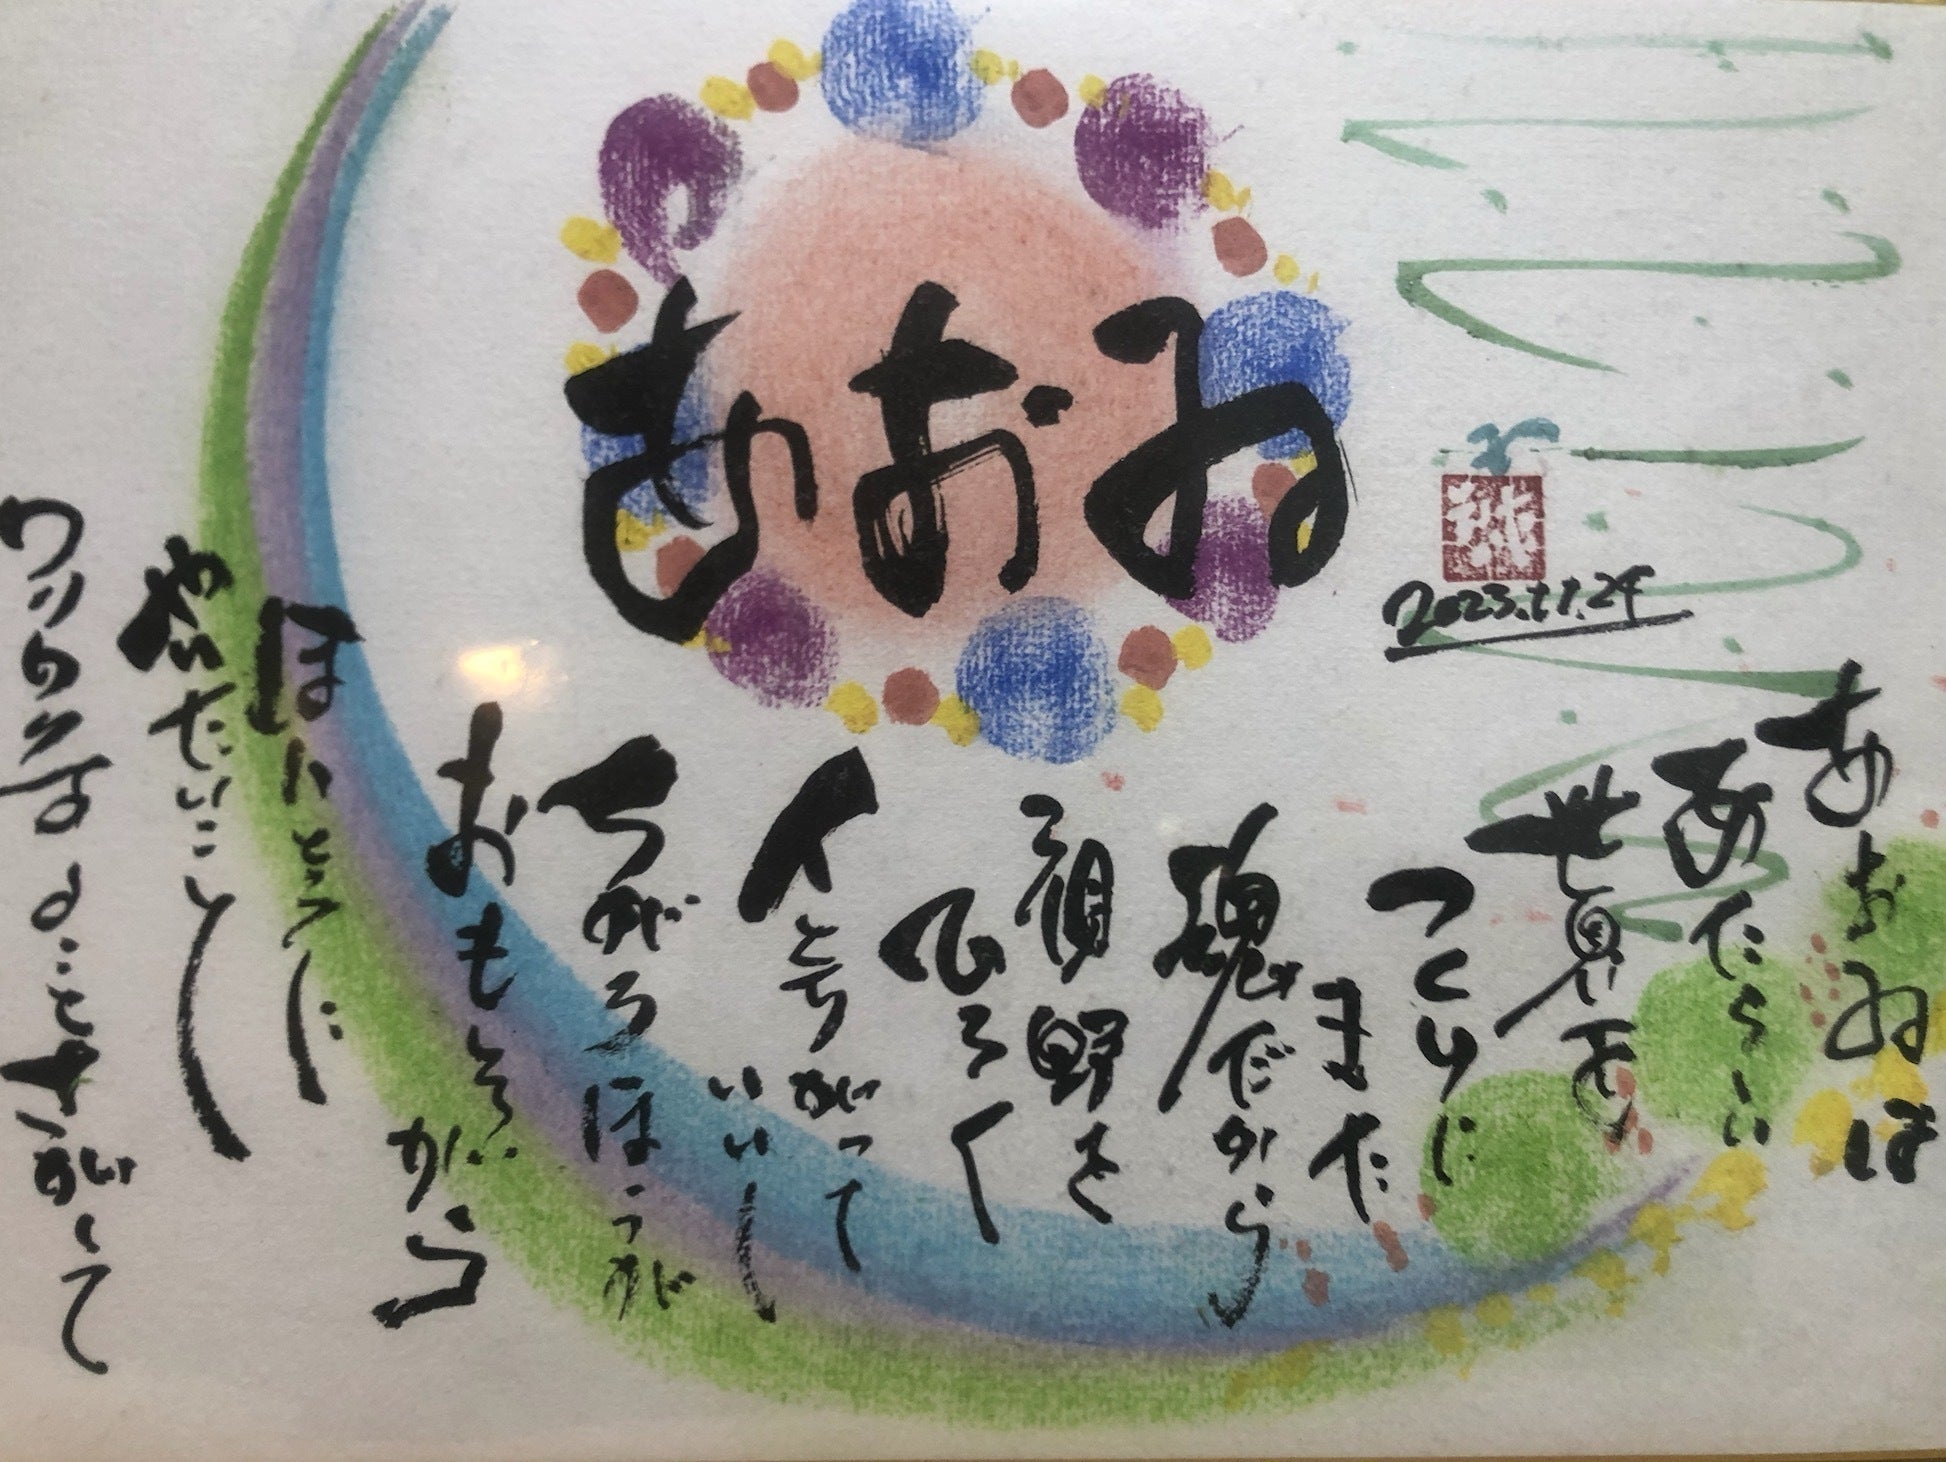 あおゐ
2023.11.24
あおゐは
あたらしい
世界を
つくりに
きた
魂だから
視野を
ひろく
人とちがって
いいし
ちがうほうが
おもしろいから
ほんとうに
やりたいこと
ワクワクすることさがして